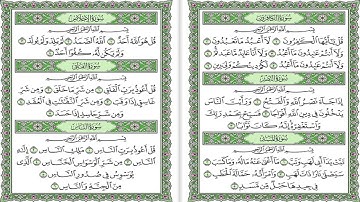 سُورَةُ الكَافِرُونَ
بِسْمِ اللَّهِ الرَّحْمَٰنِ الرَّحِيمِ
قُلْ يَٰٓأَيُّهَا الْكَٰفِرُونَ ۝١ لَآ أَعْبُدُ مَا تَعْبُدُونَ ۝٢
وَلَآ أَنتُمْ عَٰبِدُونَ مَآ أَعْبُدُ ۝٣ وَلَآ أَنَا۠ عَابِدٌ مَّا عَبَدتُّمْ ۝٤
وَلَآ أَنتُمْ عَٰبِدُونَ مَآ أَعْبُدُ ۝٥ لَكُمْ دِينُكُمْ وَلِىَ دِينِ ۝٦
سُورَةُ النَّصْرِ
بِسْمِ اللَّهِ الرَّحْمَٰنِ الرَّحِيمِ
إِذَا جَآءَ نَصْرُ اللَّهِ وَالْفَتْحُ ۝١ وَرَأَيْتَ النَّاسَ
يَدْخُلُونَ فِى دِينِ اللَّهِ أَفْوَاجًا ۝٢ فَسَبِّحْ بِحَمْدِ رَبِّكَ
وَاسْتَغْفِرْهُ إِنَّهُۥ كَانَ تَوَّابًۢا ۝٣
سُورَةُ المَسَدِ
بِسْمِ اللَّهِ الرَّحْمَٰنِ الرَّحِيمِ
تَبَّتْ يَدَآ أَبِى لَهَبٍ وَتَبَّ ۝١ مَآ أَغْنَىٰ عَنْهُ مَالُهُۥ وَمَا كَسَبَ ۝٢
سَيَصْلَىٰ نَارًا ذَاتَ لَهَبٍ ۝٣ وَامْرَأَتُهُۥ حَمَّالَةَ الْحَطَبِ ۝٤
فِى جِيدِهَا حَبْلٌ مِّن مَّسَدٍۭ ۝٥
سُورَةُ الإِخْلَاصِ
بِسْمِ اللَّهِ الرَّحْمَٰنِ الرَّحِيمِ
قُلْ هُوَ اللَّهُ أَحَدٌ ۝١ اللَّهُ الصَّمَدُ ۝٢ لَمْ يَلِدْ وَلَمْ يُولَدْ ۝٣
وَلَمْ يَكُن لَّهُۥ كُفُوًا أَحَدٌۢ ۝٤
سُورَةُ الفَلَقِ
بِسْمِ اللَّهِ الرَّحْمَٰنِ الرَّحِيمِ
قُلْ أَعُوذُ بِرَبِّ الْفَلَقِ ۝١ مِن شَرِّ مَا خَلَقَ ۝٢ وَمِن شَرِّ
غَاسِقٍ إِذَا وَقَبَ ۝٣ وَمِن شَرِّ النَّفَّٰثَٰتِ فِى الْعُقَدِ ۝٤
وَمِن شَرِّ حَاسِدٍ إِذَا حَسَدَ ۝٥
سُورَةُ النَّاسِ
بِسْمِ اللَّهِ الرَّحْمَٰنِ الرَّحِيمِ
قُلْ أَعُوذُ بِرَبِّ النَّاسِ ۝١ مَلِكِ النَّاسِ ۝٢ إِلَٰهِ
النَّاسِ ۝٣ مِن شَرِّ الْوَسْوَاسِ الْخَنَّاسِ ۝٤ الَّذِى
يُوَسْوِسُ فِى صُدُورِ النَّاسِ ۝٥
مِنَ الْجِنَّةِ وَالنَّاسِ ۝٦